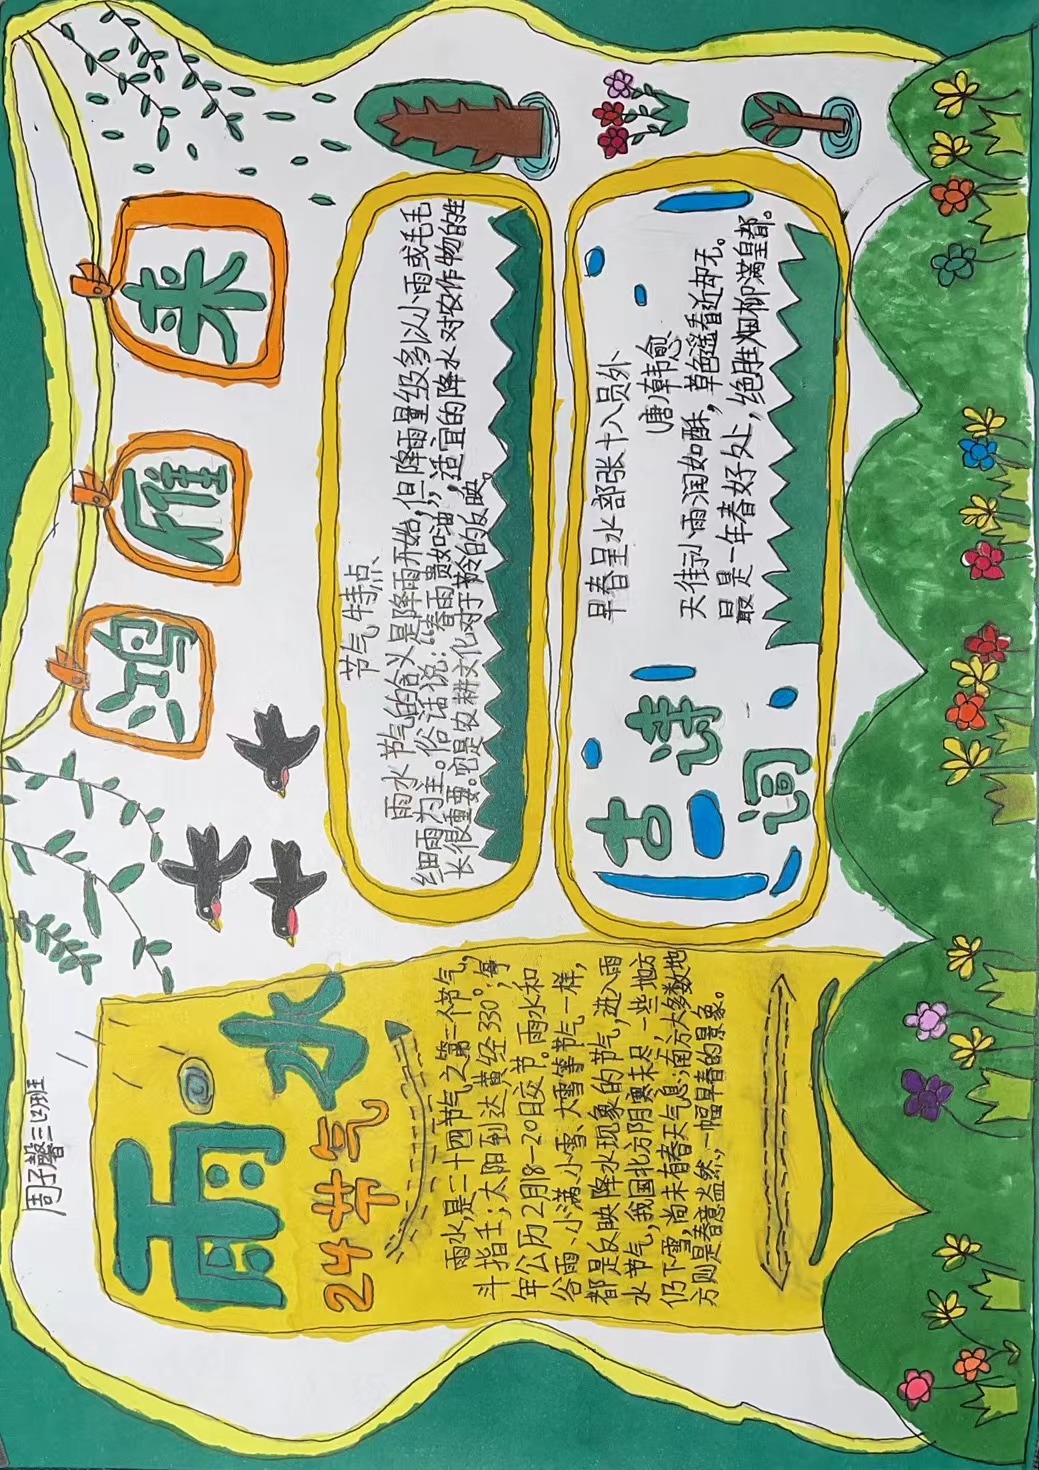 周子馨三(2)班
雨水
24节气
雨水,是二十四节气之第二个节气,
斗指壬;太阳到达黄经330°,每
年公历2月18-20日交节。雨水和
谷雨、小满、小雪、大雪等节气一样,
都是反映降水现象的节气,进入雨
水节气,我国北方阴寒未尽,一些地方
仍下雪,尚未有春天气息;南方大多数地
方则是春意盎然,一幅早春的景象。
鸿雁来
节气特点
雨水节气的含义是降雨开始,但降雨量级多以小雨或毛毛
细雨为主。俗话说:“春雨贵如油”,适宜的降水对农作物的生
长很重要。它是农耕文化对于节令的反映。
古诗词
早春呈水部张十八员外
(唐)韩愈
天街小雨润如酥,草色遥看近却无。
最是一年春好处,绝胜烟柳满皇都。